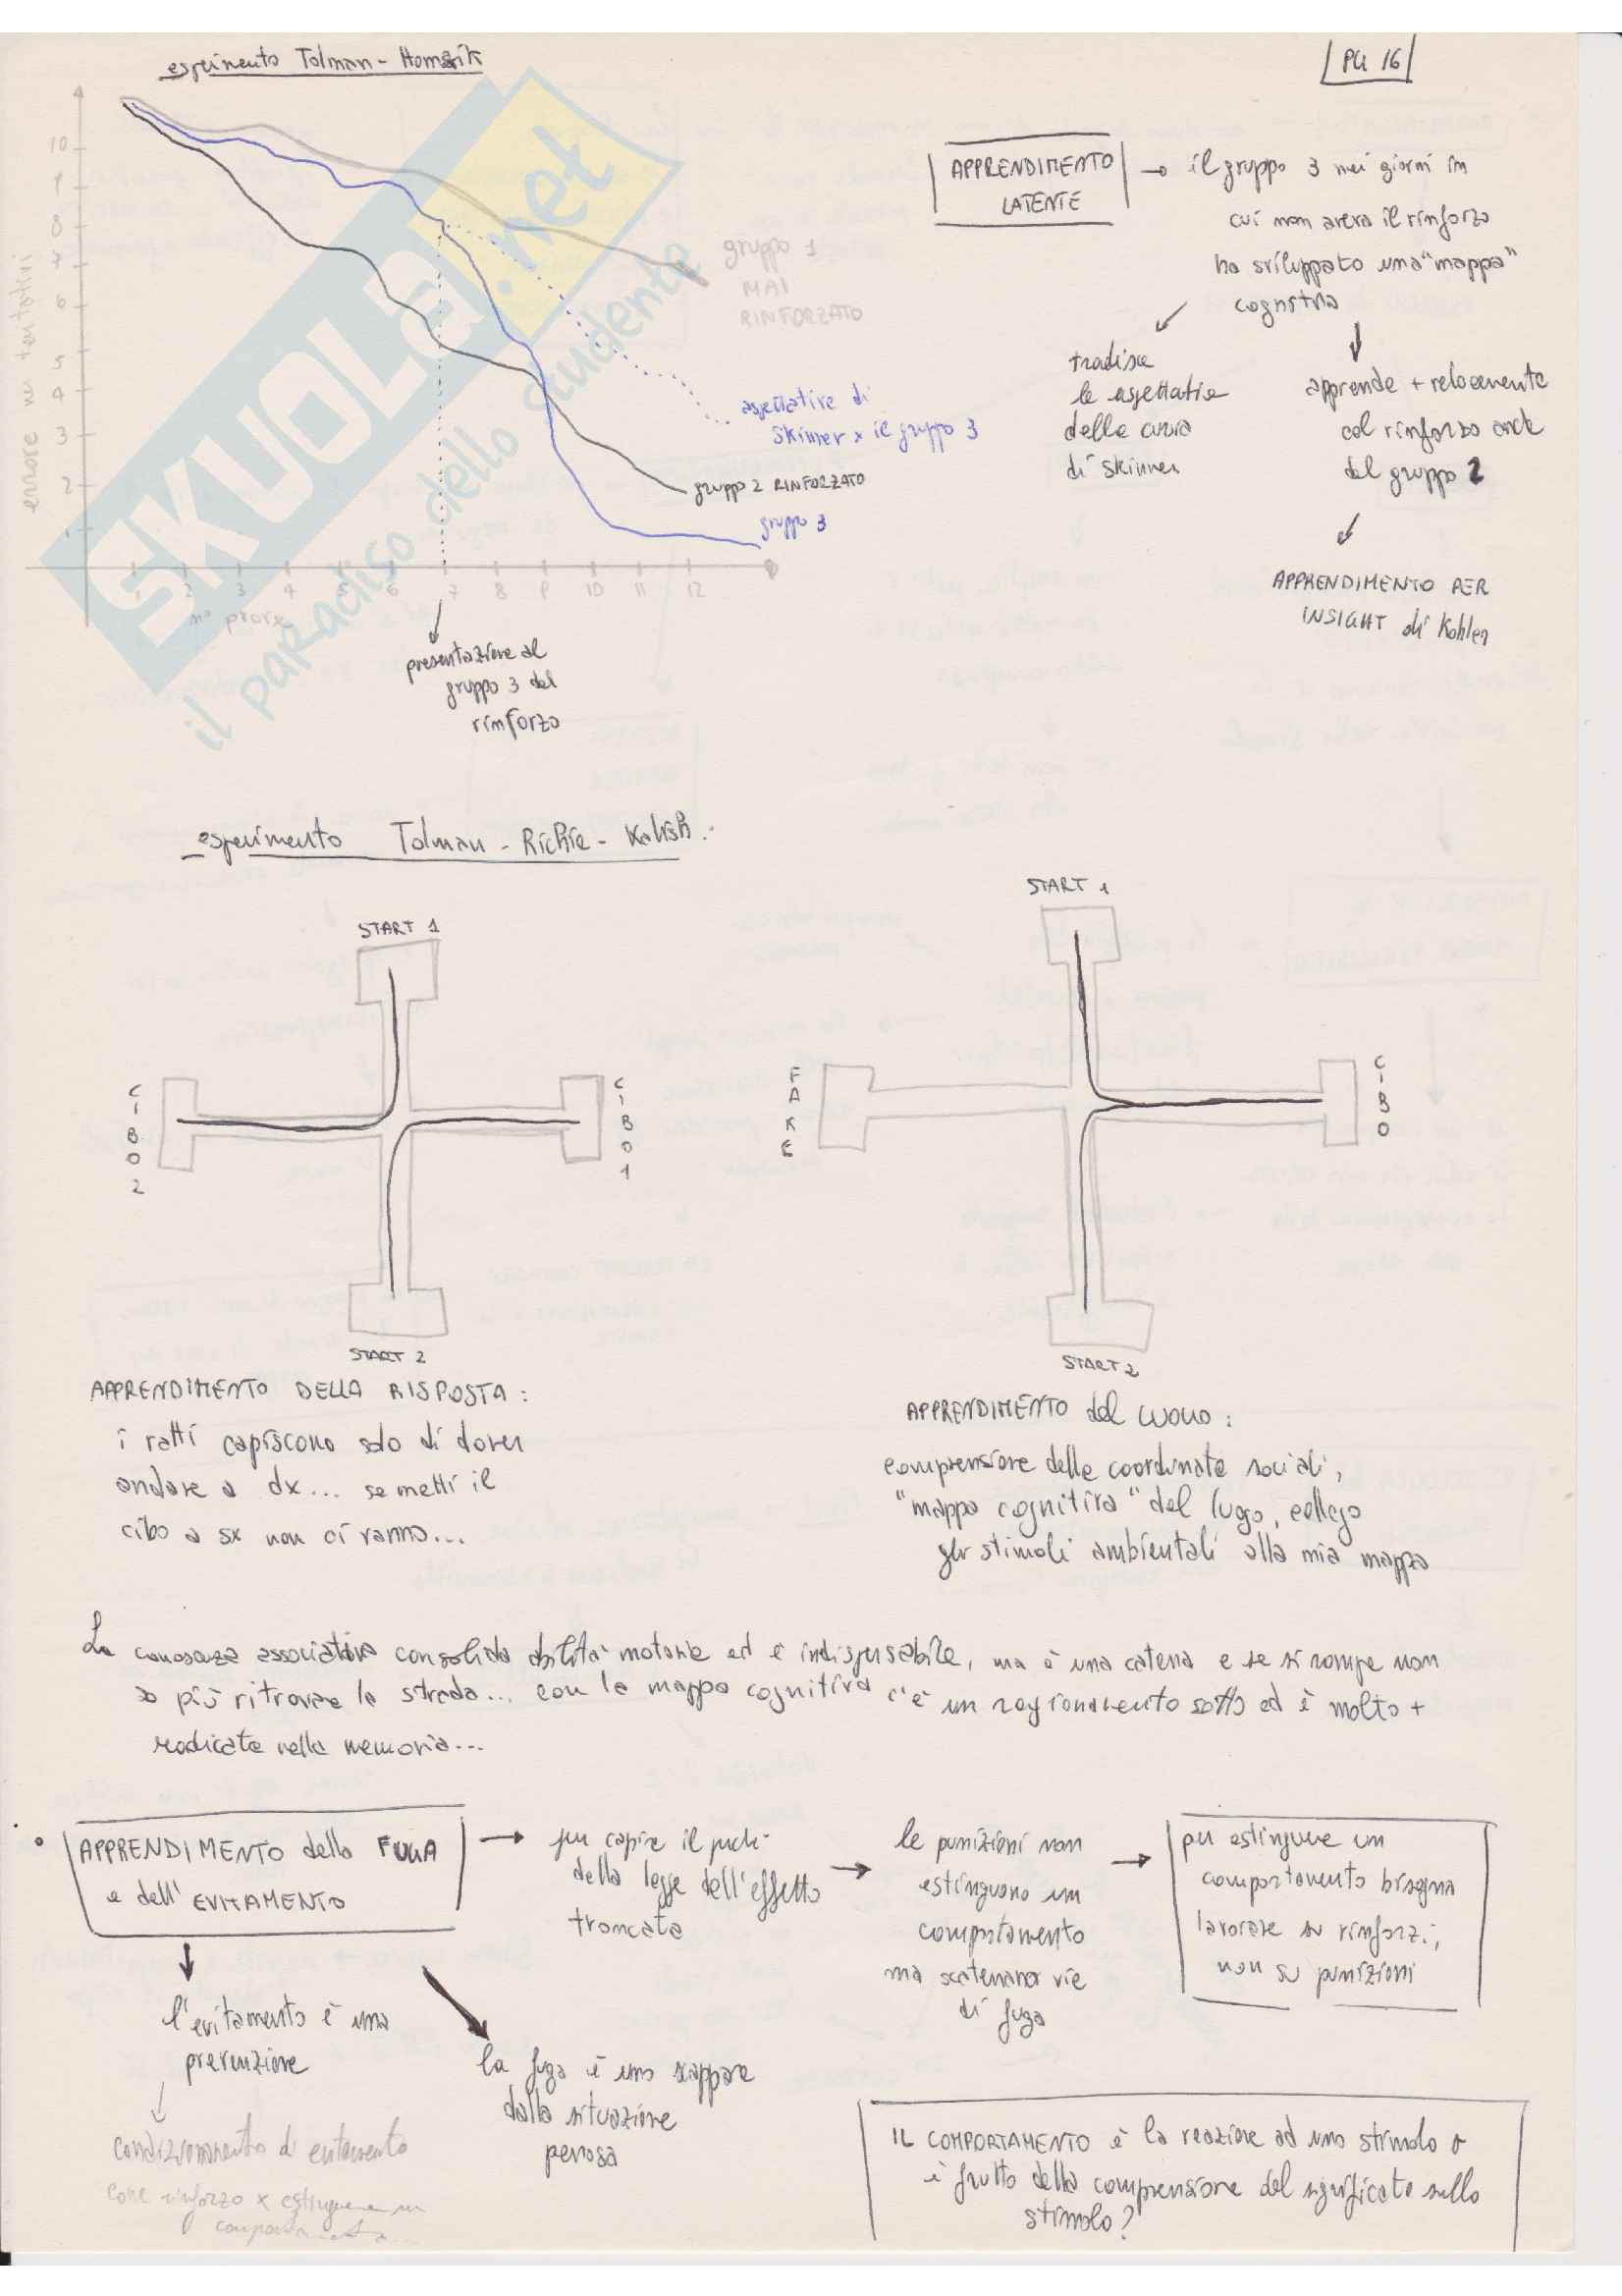 esperimento Tolman - Homzik
PG 16
errore nei tentativi
10
9
8
7
6
5
4
3
2
1
1 2 3 4 5 6 7 8 9 10 11 12
n° prove
gruppo 1
MAI
RINFORZATO
aspettative di
Skinner x il gruppo 3
gruppo 2 RINFORZATO
gruppo 3
presentazione al
gruppo 3 del
rinforzo
SKUOLA.net
il paradiso dello studente
APPRENDIMENTO
LATENTE
→ il gruppo 3 nei giorni in
cui non aveva il rinforzo
ha sviluppato una "mappa"
cognitiva
tradisce
le aspettative
della curva
di Skinner
apprende + velocemente
col rinforzo anche
del gruppo 2
APPRENDIMENTO PER
INSIGHT di Kohler
esperimento Tolman - Richie - Kalish.
START 1
CIBO 2
CIBO 1
START 2
START 1
FAKE
CIBO
START 2
APPRENDIMENTO DELLA RISPOSTA:
i ratti capiscono solo di dover
andare a dx... se metti il
cibo a sx non ci vanno...
APPRENDIMENTO del LUOGO:
comprensione delle coordinate sociali,
"mappa cognitiva" del lugo, collego
gli stimoli ambientali alla mia mappa
La conoscenza associativa consolida abilità motorie ed è indispensabile, ma è una catena e se si rompe non
so più ritrovare la strada... con la mappa cognitiva c'è un ragionamento sotto ed è molto +
radicata nella memoria...
• APPRENDIMENTO della FUGA
e dell'EVITAMENTO
→ per capire il perché
della legge dell'effetto
troncata
→ le punizioni non
estinguono un
comportamento
ma scatenano vie
di fuga
→ per estinguere un
comportamento bisogna
lavorare su rinforzi,
non su punizioni
l'evitamento è una
prevenzione
condizionamento di evitamento
come rinforzo x estinguere un
comportamento...
la fuga è uno scappare
dalla situazione
penosa
IL COMPORTAMENTO è la reazione ad uno stimolo o
è frutto della comprensione del significato sullo
stimolo?